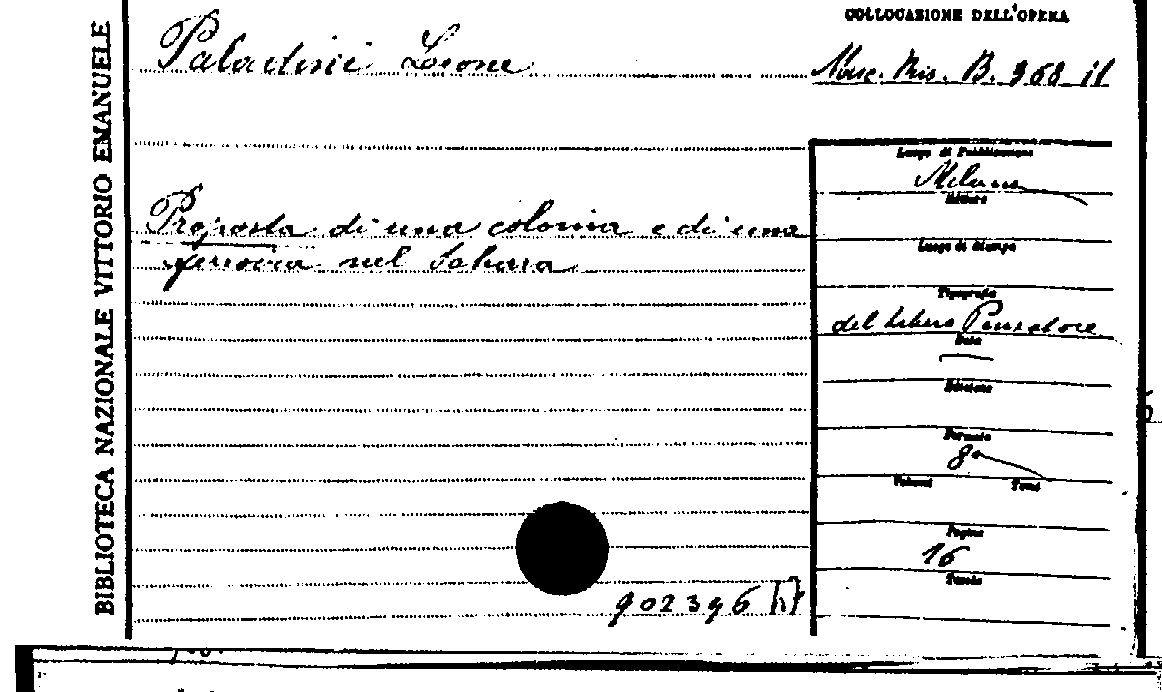 BIBLIOTECA NAZIONALE VITTORIO EMANUELE
COLLOCAZIONE DELL'OPERA
Paladini Leone
Misc. Ris. B. 368 11
Luogo di Pubblicazione
Milano
Editore
Proposta di una colonia e di una
ferrovia nel Sahara
Luogo di Stampa
Tipografia
del Libero Pensatore
Data
Edizione
Formato
8°
Volumi Tomi
Pagine
16
Tavole
902396